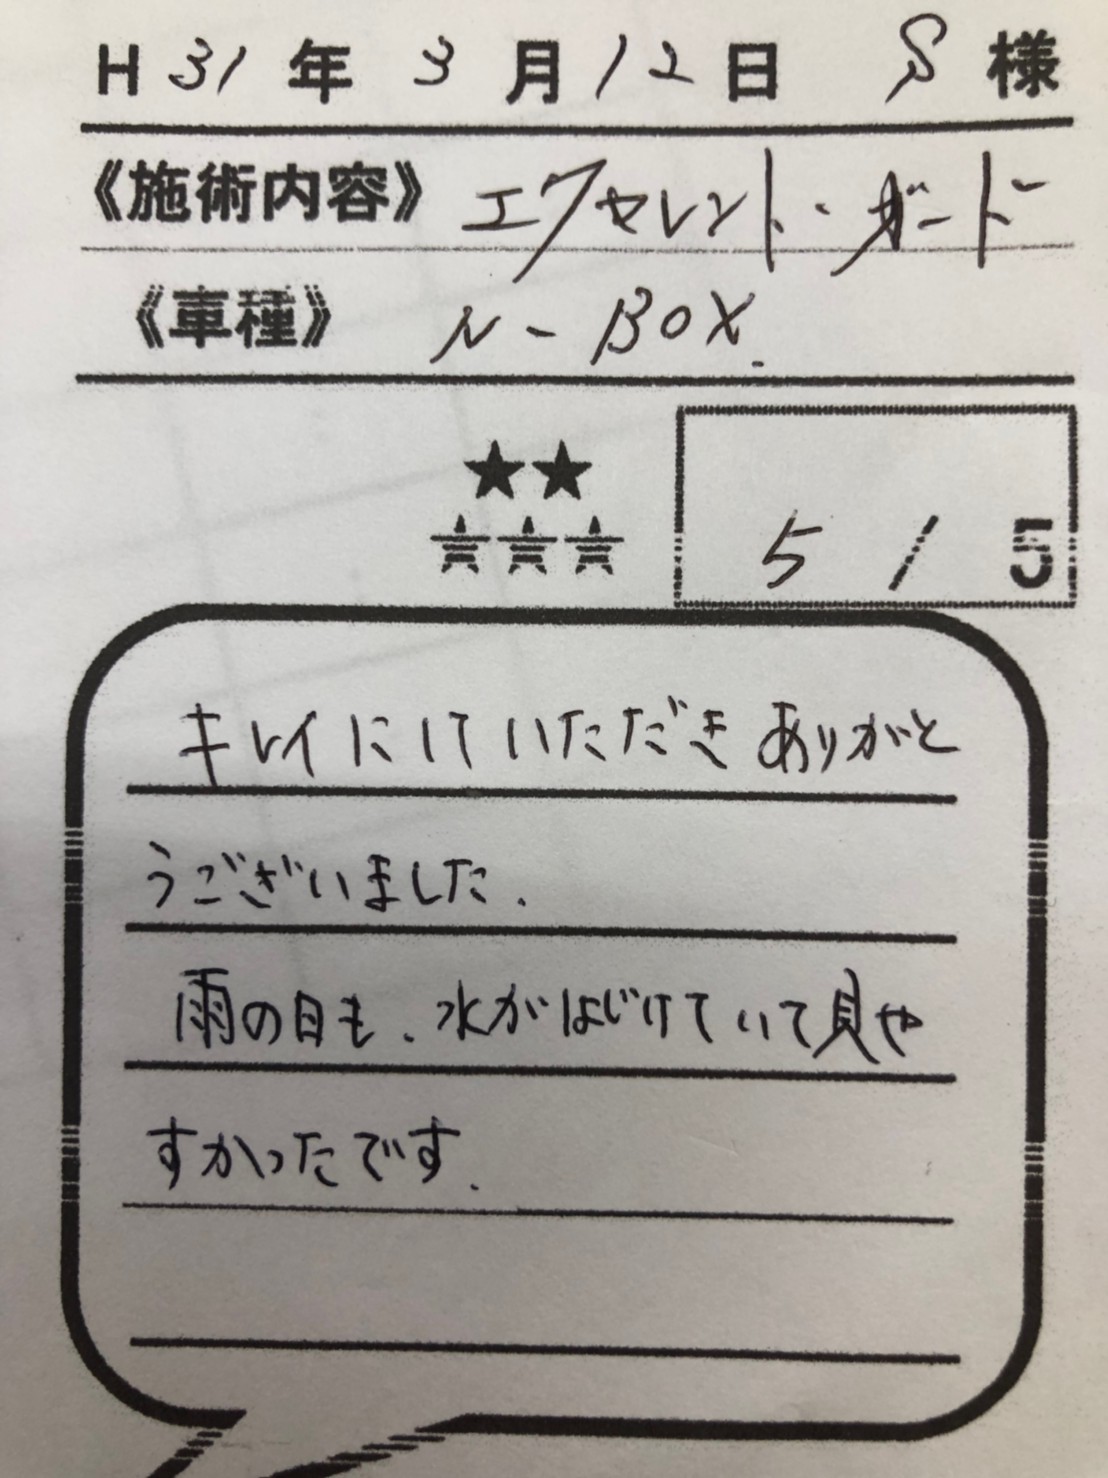 H31年3月12日 S様
《施術内容》 エクセレント・ガード
《車種》 N-BOX.
★★
★★★
5/5
キレイにしていただきありがと
うございました.
雨の日も、水がはじけていて見や
すかったです.